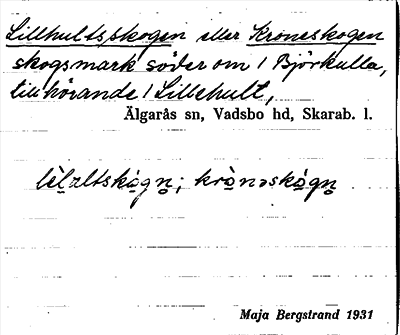 Lillhultsskogen eller Kroneskogen
skogsmark söder om / Björkulla,
tillhörande / Lillehult,
Älgarås sn, Vadsbo hd, Skarab. l.
lìl̥altskо̀gn̥; krо̀nəskо̀gn̥
Maja Bergstrand 1931